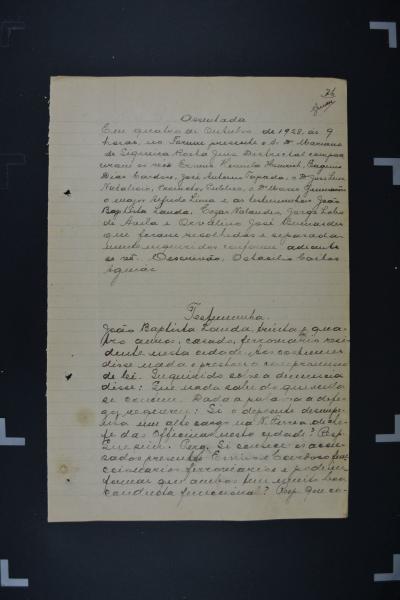 76
Assentada
Em quatro de Outubro de 1928, ás 9
horas, no Forum presente o Sr. Dr Mariano
de Siqueira Rocha Juiz Districtal compare
ceram os réos Ermino Heinrich, Eugenio
Dias Cardoso, José Antonio Topado, o Dr José Luiz
Natalicio, Promotor Publico, o Dr
o major Alfredo Lima e as testemunhas João
Baptista Landa, Cezar Nolandes, Jorge Lobo
de Avila e Orvalino José Bernardes
que foram recolhidos e separada-
mente inqueridos conforme adiante
se vê. Oct
Testemunha.
João Baptista Landa, trinta e qua-
tro annos, casado, ferroviario resi-
dente nesta cidade. Aos costumes
disse nada e prestou o compromisso
de lei. Inquirido sobre a denuncia
disse: Que nada sabe do que nella
se contém. Dada a palavra a defe-
za requereu: Si o depoente desempe-
nha um alto cargo na V. Ferrea, de che-
fe das Officinas nesta cidade? Resp.
Que sim. Perg. Si conhece os accu-
sados presentes Ermino e Cardoso func
cionarios ferroviarios e pode in-
formar que ambos tem muito boa
conducta funccional? Resp. Que co-